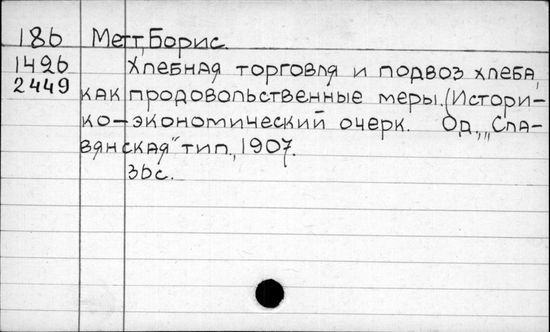 186 Метт, Борис.
1426 Хлебная торговля и подвоз хлеба,
2449 как продовольственные меры. (Истори-
ко-экономический очерк. Од., „Сла-
вянская" тип., 1907.
36с.